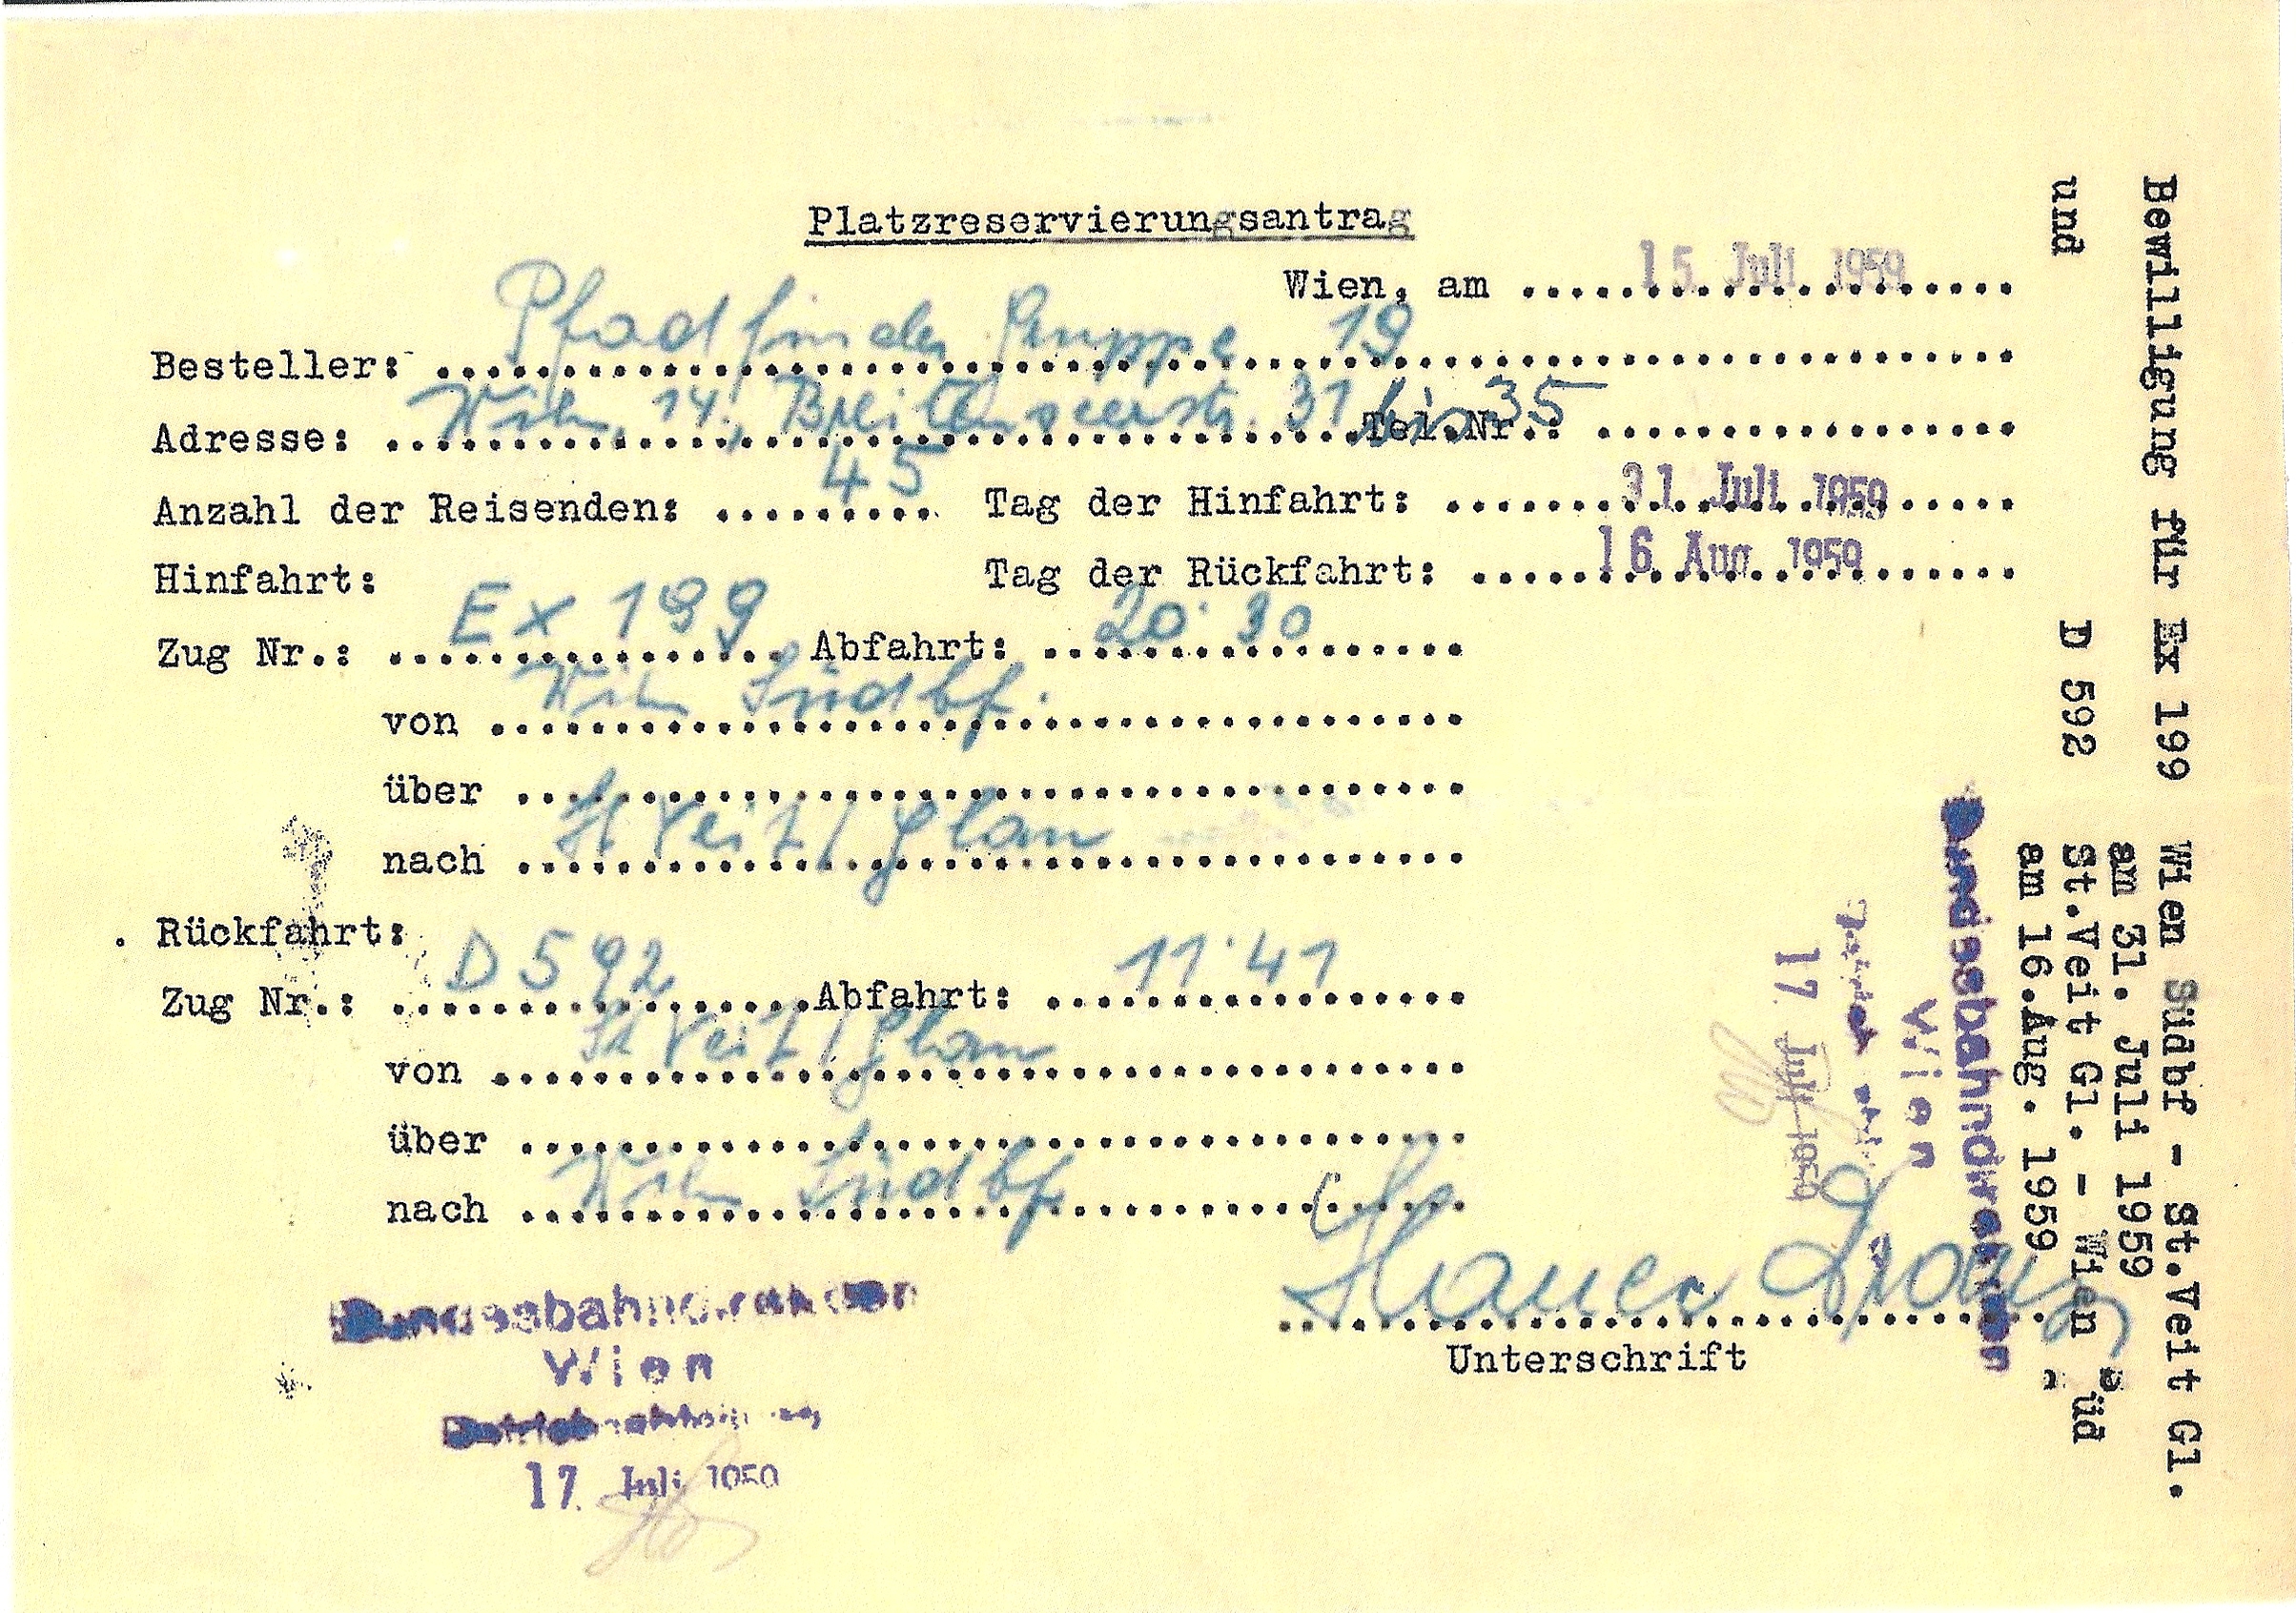 Platzreservierungsantrag
Wien, am ..... 15. Juli 1959 .....
Besteller: Pfadfinder Gruppe 19
Adresse: Wien, 14., Breitenseerstr. 31 bis 35 Tel.Nr.: .....
Anzahl der Reisenden: 45 Tag der Hinfahrt: 31. Juli 1959
Hinfahrt: Tag der Rückfahrt: 16. Aug. 1959
Zug Nr.: Ex 199 Abfahrt: 20.30
von Wien Südbf.
über .....
nach St Veit / Glan
Rückfahrt:
Zug Nr.: D 592 Abfahrt: 11.41
von St Veit / Glan
über .....
nach Wien Südbf.
Unterschrift
Bundesbahndirektion
Wien
17. Juli 1959
Bewilligung für Ex 199 Wien Südbf - St.Veit Gl.
am 31. Juli 1959
und D 592 St.Veit Gl. - Wien Süd
am 16.Aug. 1959
Bundesbahndirektion
Wien
17. Juli 1959